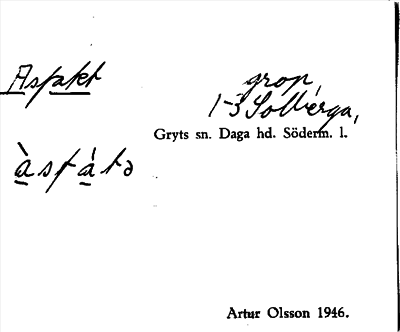 Aspakt
grop,
1-3 Solberga,
Gryts sn. Daga hd. Söderm. l.
àspátə
Artur Olsson 1946.